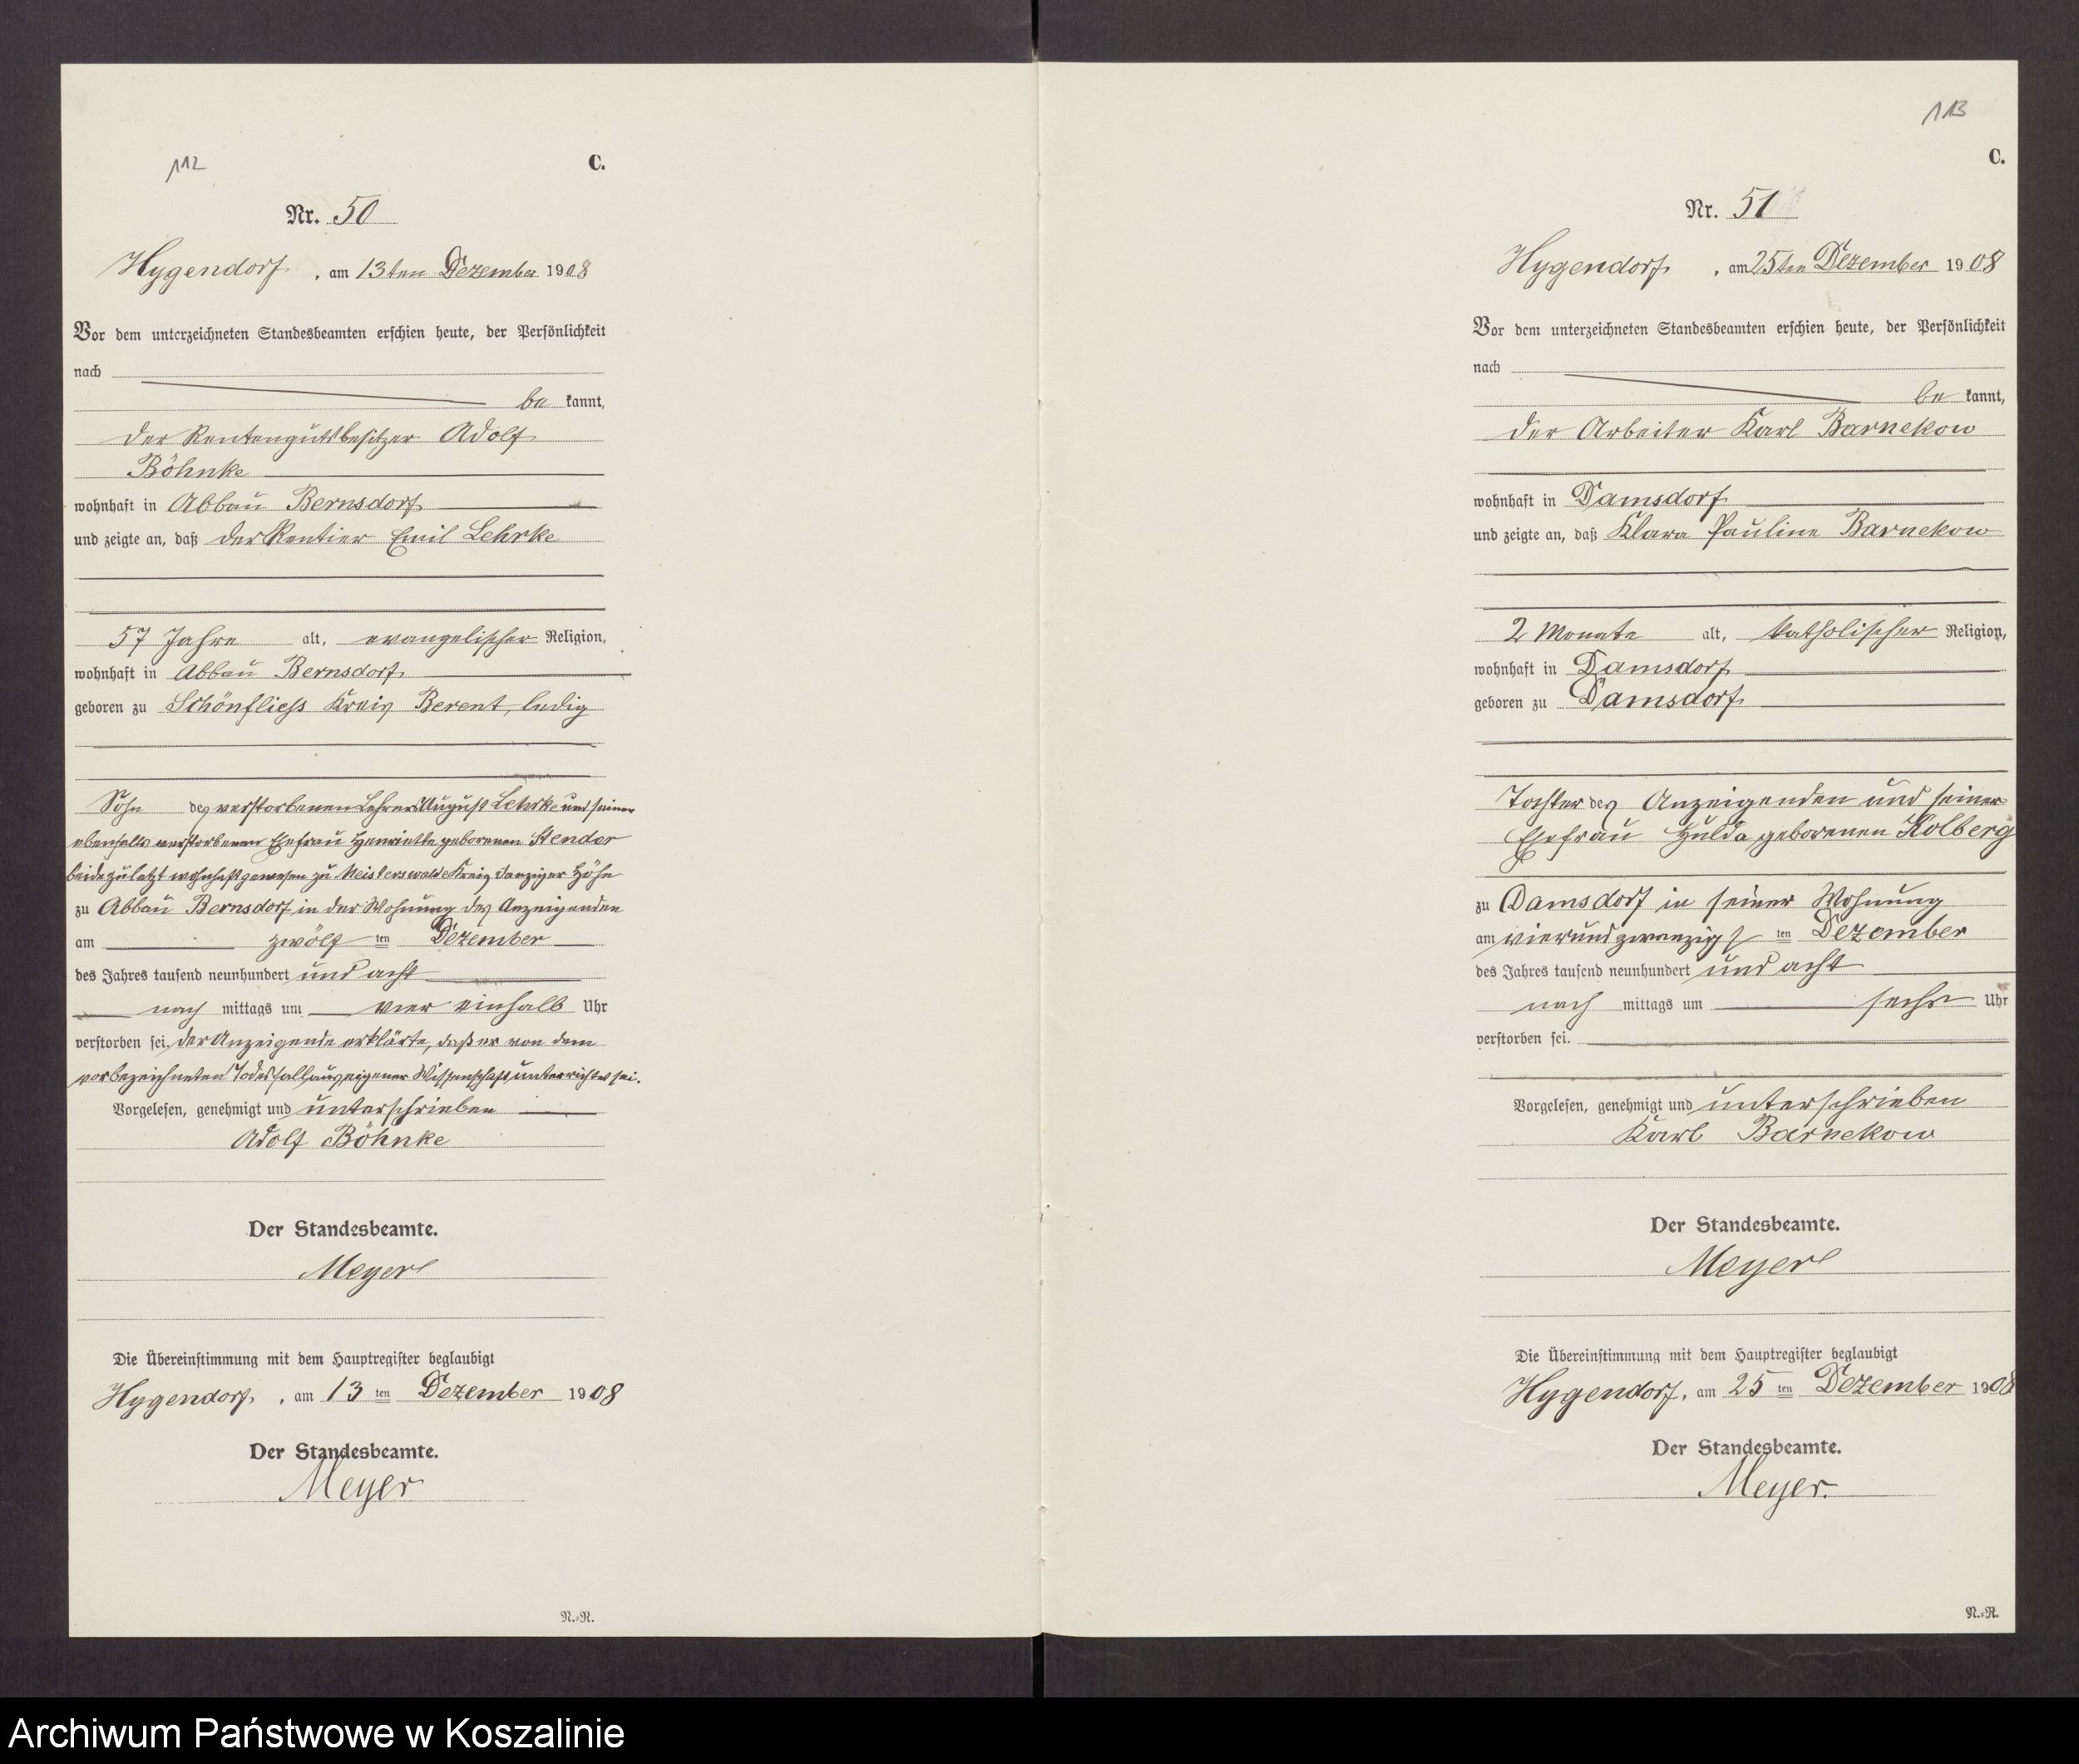 112
C.
Nr. 50
Hygendorf, am 13ten Dezember 1908
Vor dem unterzeichneten Standesbeamten erschien heute, der Persönlichkeit
nach
be kannt,
der Rentengutsbesitzer Adolf
Böhnke
wohnhaft in Abbau Bernsdorf
und zeigte an, daß der Rentier Emil Lehrke
57 Jahre alt, evangelischer Religion,
wohnhaft in Abbau Bernsdorf
geboren zu Schönfliess Kreis Berent, ledig
Sohn des verstorbenen Lehrers August Lehrke und seiner
ebenfalls verstorbenen Ehefrau Henriette geborenen Stender
beide zuletzt wohnhaft gewesen zu Meisterswalde Kreis Danziger Höhe
zu Abbau Bernsdorf in der Wohnung des Anzeigenden
am zwölf ten Dezember
des Jahres tausend neunhundert und acht
nach mittags um vier einhalb Uhr
verstorben sei. der Anzeigende erklärte, daß er von dem
vorbezeichneten Todesfall aus eigener Wissenschaft unterrichtet sei.
Vorgelesen, genehmigt und unterschrieben
Adolf Böhnke
Der Standesbeamte.
Meyer
Die Übereinstimmung mit dem Hauptregister beglaubigt
Hygendorf, am 13 ten Dezember 1908
Der Standesbeamte.
Meyer
N.=R.
113
C.
Nr. 51
Hygendorf, am 25ten Dezember 1908
Vor dem unterzeichneten Standesbeamten erschien heute, der Persönlichkeit
nach
be kannt,
der Arbeiter Karl Barnekow
wohnhaft in Damsdorf
und zeigte an, daß Klara Pauline Barnekow
2 Monate alt, katholischer Religion,
wohnhaft in Damsdorf
geboren zu Damsdorf
Tochter des Anzeigenden und seiner
Ehefrau Hulda geborenen Kolberg
zu Damsdorf in seiner Wohnung
am vierundzwanzigs ten Dezember
des Jahres tausend neunhundert und acht
nach mittags um sechs Uhr
verstorben sei.
Vorgelesen, genehmigt und unterschrieben
Karl Barnekow
Der Standesbeamte.
Meyer
Die Übereinstimmung mit dem Hauptregister beglaubigt
Hygendorf, am 25 ten Dezember 1908
Der Standesbeamte.
Meyer.
N.=R.
Archiwum Państwowe w Koszalinie